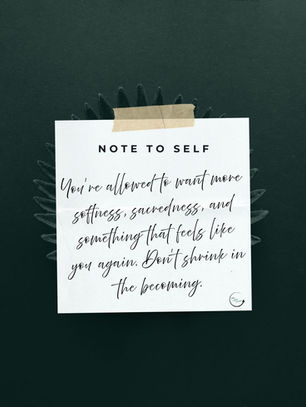 NOTE TO SELF
You're allowed to want more
softness, sacredness, and
something that feels like
you again. Don't shrink in
the becoming.